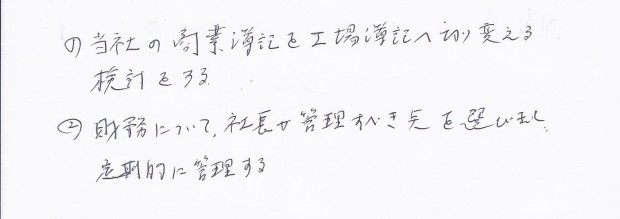 ① 当社の商業簿記を工場簿記へ切り変える
検討をする
② 財務について、社長が管理すべき点を選び出し
定期的に管理する